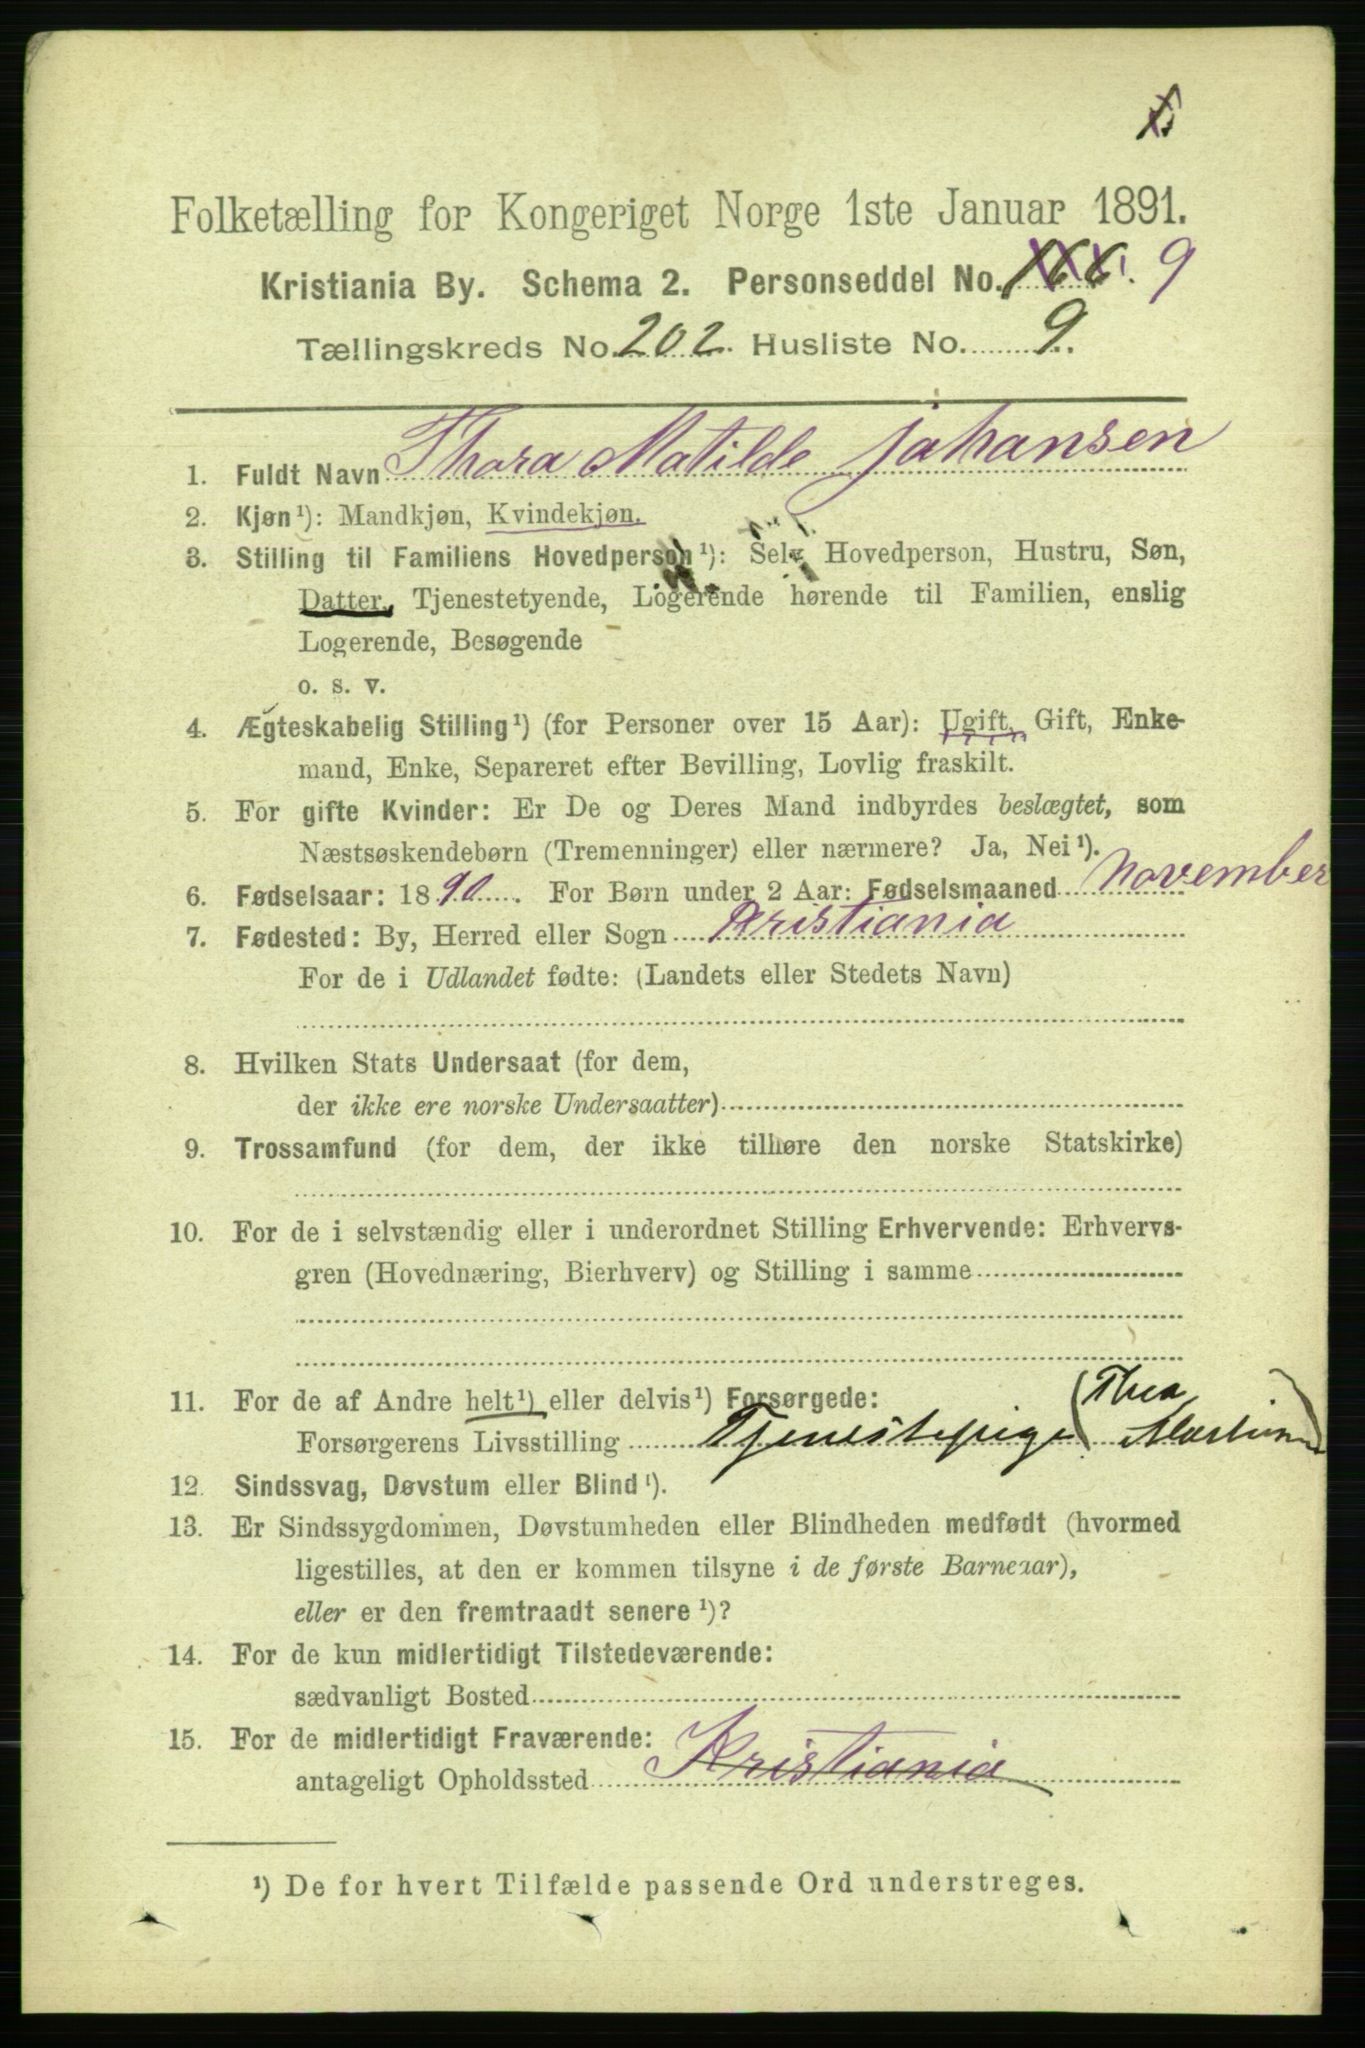 Folketælling for Kongeriget Norge 1ste Januar 1891.
Kristiania By. Schema 2. Personseddel No. 166. 9
Tællingskreds No. 202. Husliste No. 9.
1. Fuldt Navn Thora Matilde Johansen
2. Kjøn¹): Mandkjøn, Kvindekjøn.
3. Stilling til Familiens Hovedperson¹): Selv Hovedperson, Hustru, Søn,
Datter, Tjenestetyende, Logerende hørende til Familien, enslig
Logerende, Besøgende
o. s. v.
4. Ægteskabelig Stilling¹) (for Personer over 15 Aar): Ugift, Gift, Enke-
mand, Enke, Separeret efter Bevilling, Lovlig fraskilt.
5. For gifte Kvinder: Er De og Deres Mand indbyrdes beslægtet, som
Næstsøskendebørn (Tremenninger) eller nærmere? Ja, Nei¹).
6. Fødselsaar: 1890. For Børn under 2 Aar: Fødselsmaaned November
7. Fødested: By, Herred eller Sogn Kristiania
For de i Udlandet fødte: (Landets eller Stedets Navn)
8. Hvilken Stats Undersaat (for dem,
der ikke ere norske Undersaatter)
9. Trossamfund (for dem, der ikke tilhøre den norske Statskirke)
10. For de i selvstændig eller i underordnet Stilling Erhvervende: Erhvervs-
gren (Hovednæring, Bierhverv) og Stilling i samme
11. For de af Andre helt¹) eller delvis¹) Forsørgede:
Forsørgerens Livsstilling Tjenestepige (Thea
12. Sindssvag, Døvstum eller Blind¹).
13. Er Sindssygdommen, Døvstumheden eller Blindheden medfødt (hvormed
ligestilles, at den er kommen tilsyne i de første Barneaar),
eller er den fremtraadt senere¹)?
14. For de kun midlertidigt Tilstedeværende:
sædvanligt Bosted
15. For de midlertidigt Fraværende:
antageligt Opholdssted Kristiania
¹) De for hvert Tilfælde passende Ord understreges.